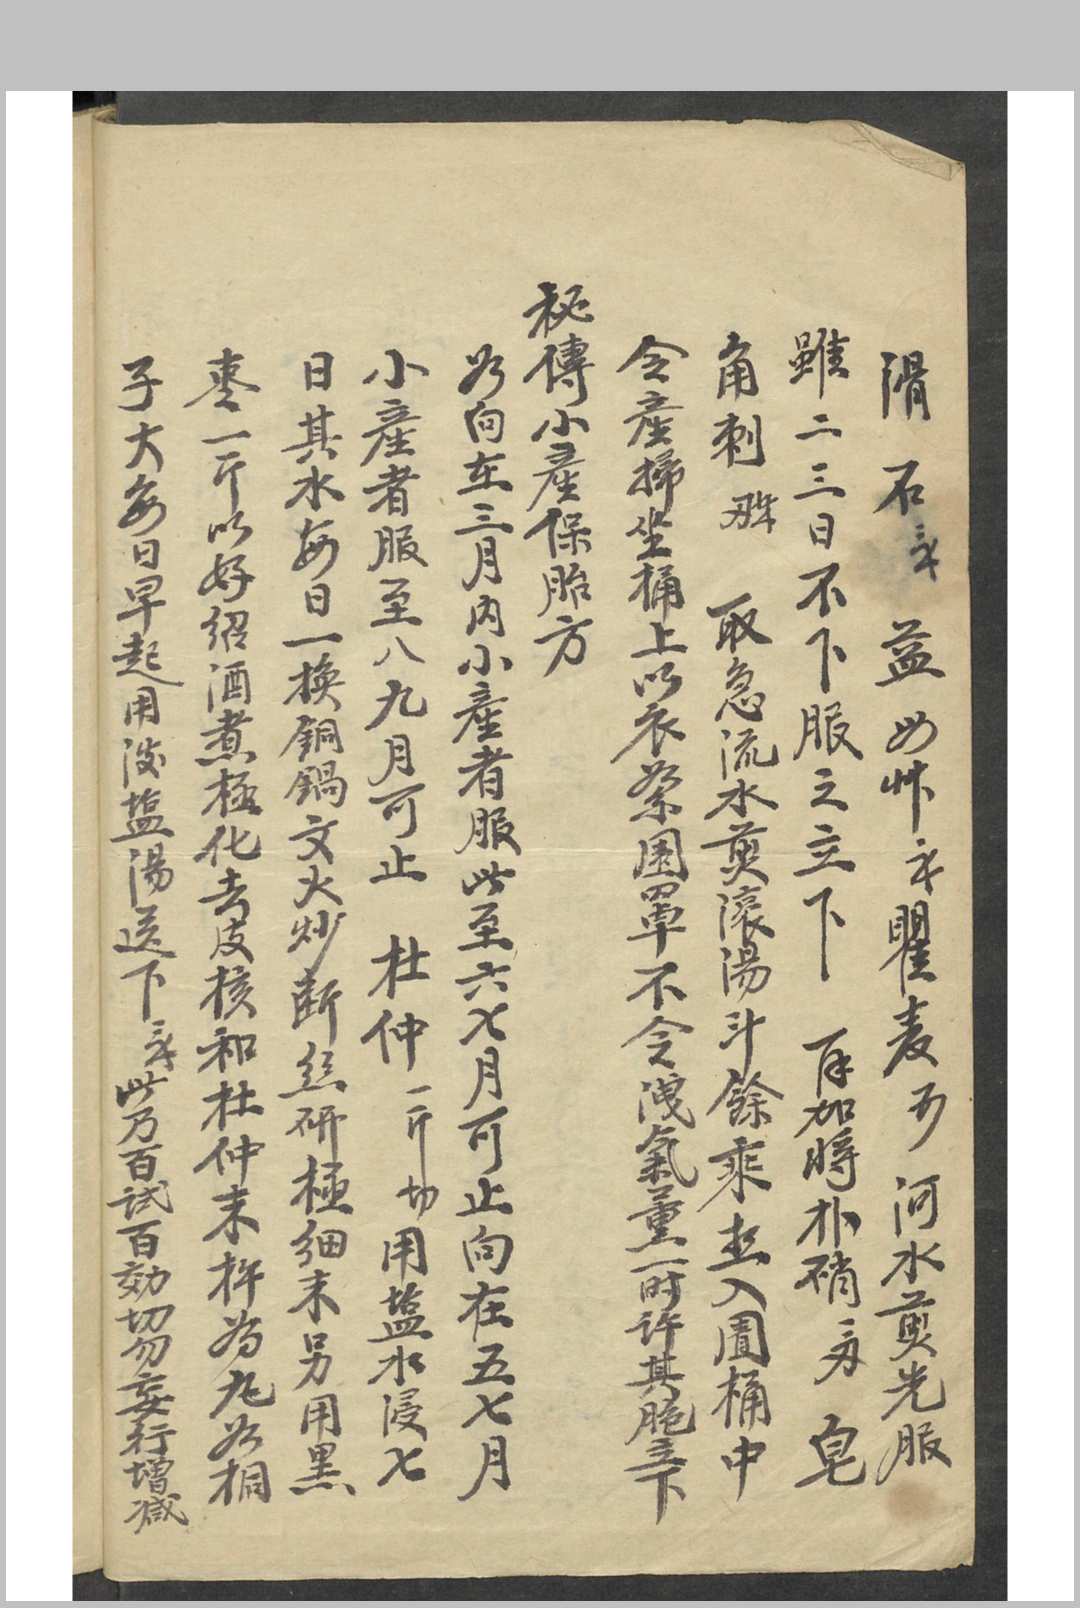 滑石 益母艸 瞿麦 河水煎光服
雖二三日不下服之立下 再加時朴硝 皂
角刺 取急流水煎滚湯斗餘乘熱入圊桶中
令產婦坐桶上以衣衾圍罩不令洩氣薰一时许其胞立下
秘傳小產保胎方
如向在三月内小產者服此至六七月可止向在五七月
小產者服至八九月可止 杜仲一斤切用塩水浸七
日其水每日一换銅鍋文火炒断丝研極细末另用黑
枣一斤以好绍酒煮極化去皮核和杜仲末杵为丸如桐
子大每日早起用淡塩湯送下 此方百試百効切勿妄行增减